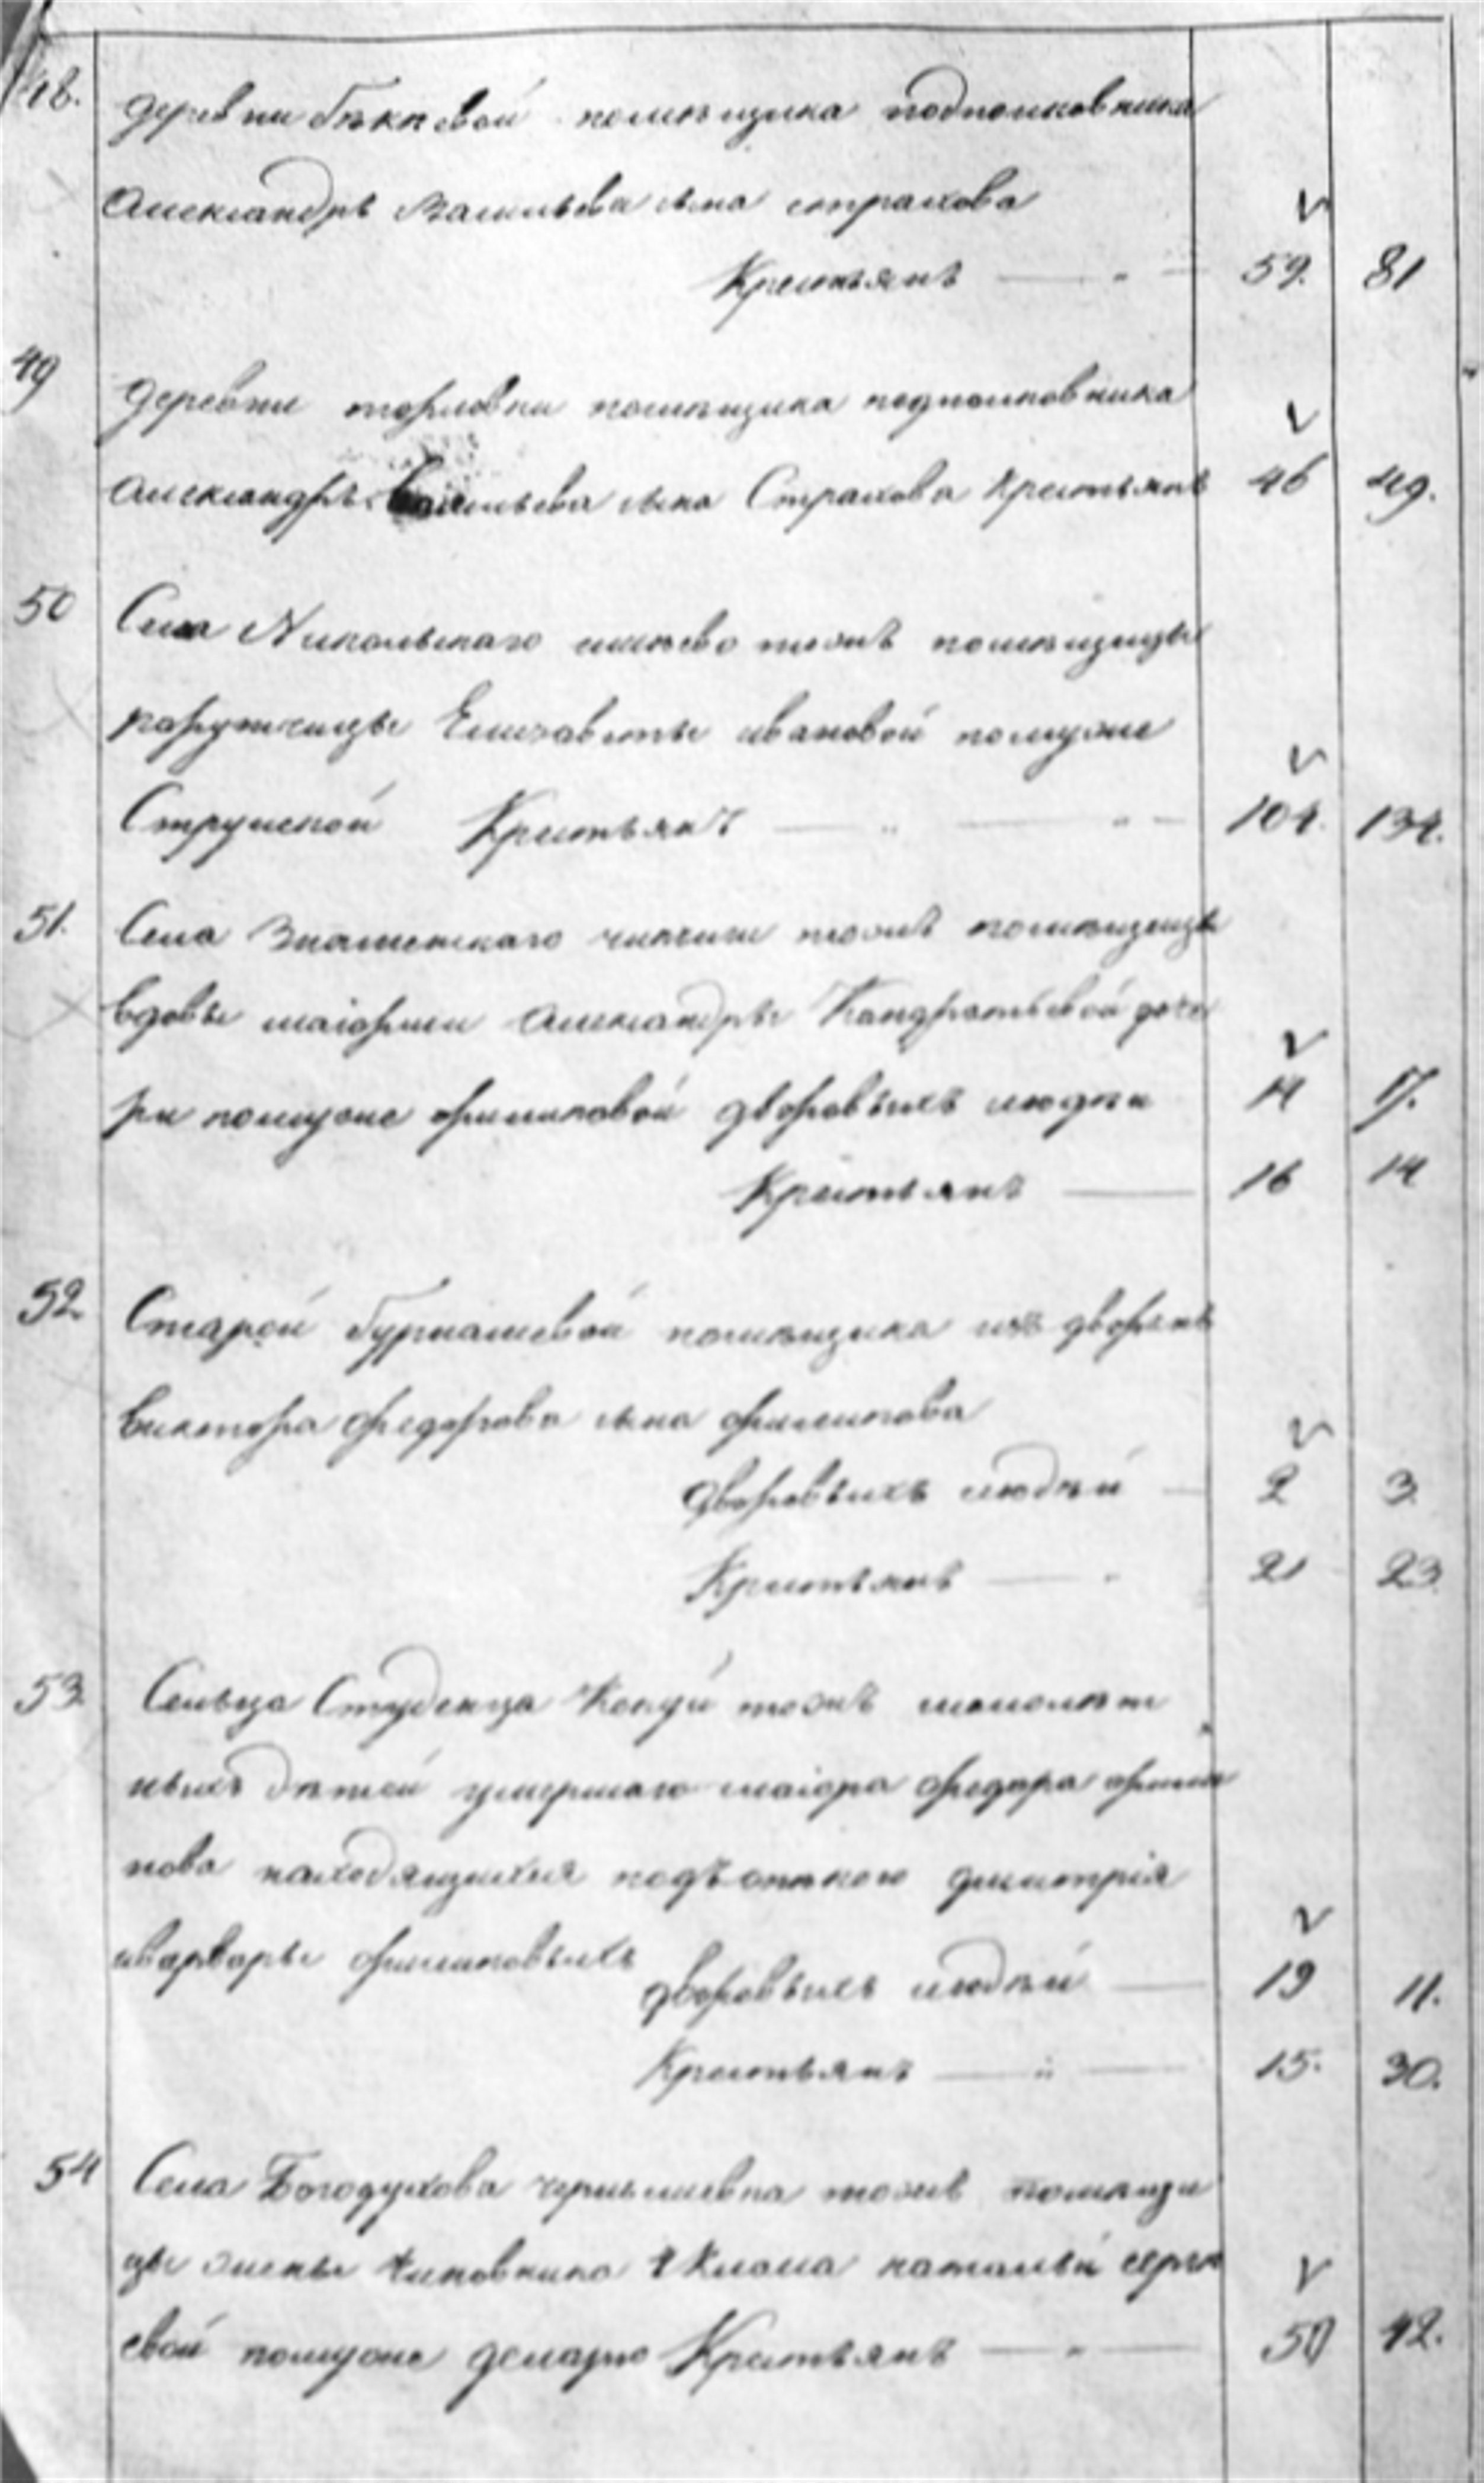 48. деревни помѣщика подполковника
Александръ Васильева сына страхова
Крестьянъ 59. 81
49 деревни помѣщика подполковника
Александръ Васильева сына Страхова крестьянъ 46 49.
50 Села Никольскаго тожъ помѣщицы
порутчицы Елизаветы ивановой помужие
Струйской Крестьянъ 104. 134.
51. Села Знаменскаго тожъ помѣщицы
вдовы маіорши Александры Кандратьевой доче
ри помужие филиповой дворовыхъ людѣи 14 17.
Крестьянъ 16 14
52 Старой бурнашевой помѣщика изъ дворянъ
виктора федорова сына филипова
дворовыхъ людѣй 2 3
Крестьянъ 21 23
53 Сельца Студенца тожъ малолѣт
ныхъ дѣтей умершаго маіора федора фили
пова находящихся подъ опѣкою димитрія
иварвары филиповыхъ
дворовыхъ людѣй 19 11.
Крестьянъ 15. 30.
54 Села Богодухова тожъ помѣщи
цы жены чиновника натальи сергѣ
евой помужие Крестьянъ 50 42.